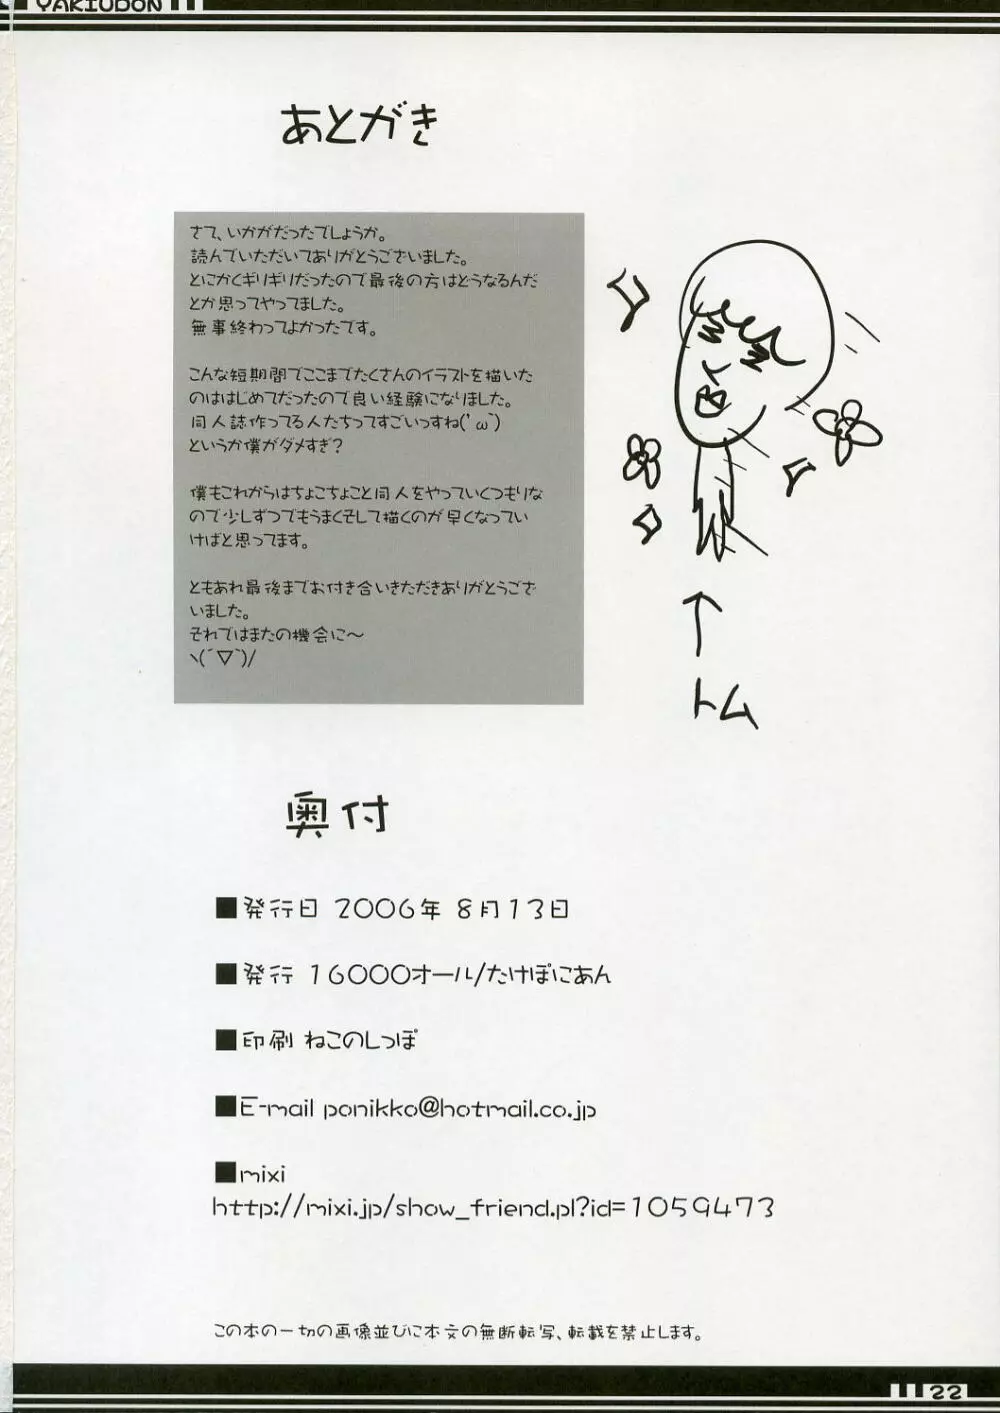 YAKIUDON
あとがき
さて、いかがだったでしょうか。
読んでいただいてありがとうございました。
とにかくギリギリだったので最後の方はどうなるんだ
とか思ってやってました。
無事終わってよかったです。
こんな短期間でここまでたくさんのイラストを描いた
のははじめてだったので良い経験になりました。
同人誌作ってる人たちってすごいっすね(’ω`)
というか僕がダメすぎ？
僕もこれからはちょこちょこと同人をやっていくつもりな
ので少しずつでもうまくそして描くのが早くなってい
ければと思ってます。
ともあれ最後までお付き合いきただきありがとうござ
いました。
それではまたの機会に～
ヽ(´▽`)/
↑
トム
奥付
■発行日 2006年 8月13日
■発行 16000オール/たけぽにあん
■印刷 ねこのしっぽ
■E-mail ponikko@hotmail.co.jp
■mixi
http://mixi.jp/show_friend.pl?id=1059473
この本の一切の画像並びに本文の無断転写、転載を禁止します。
22